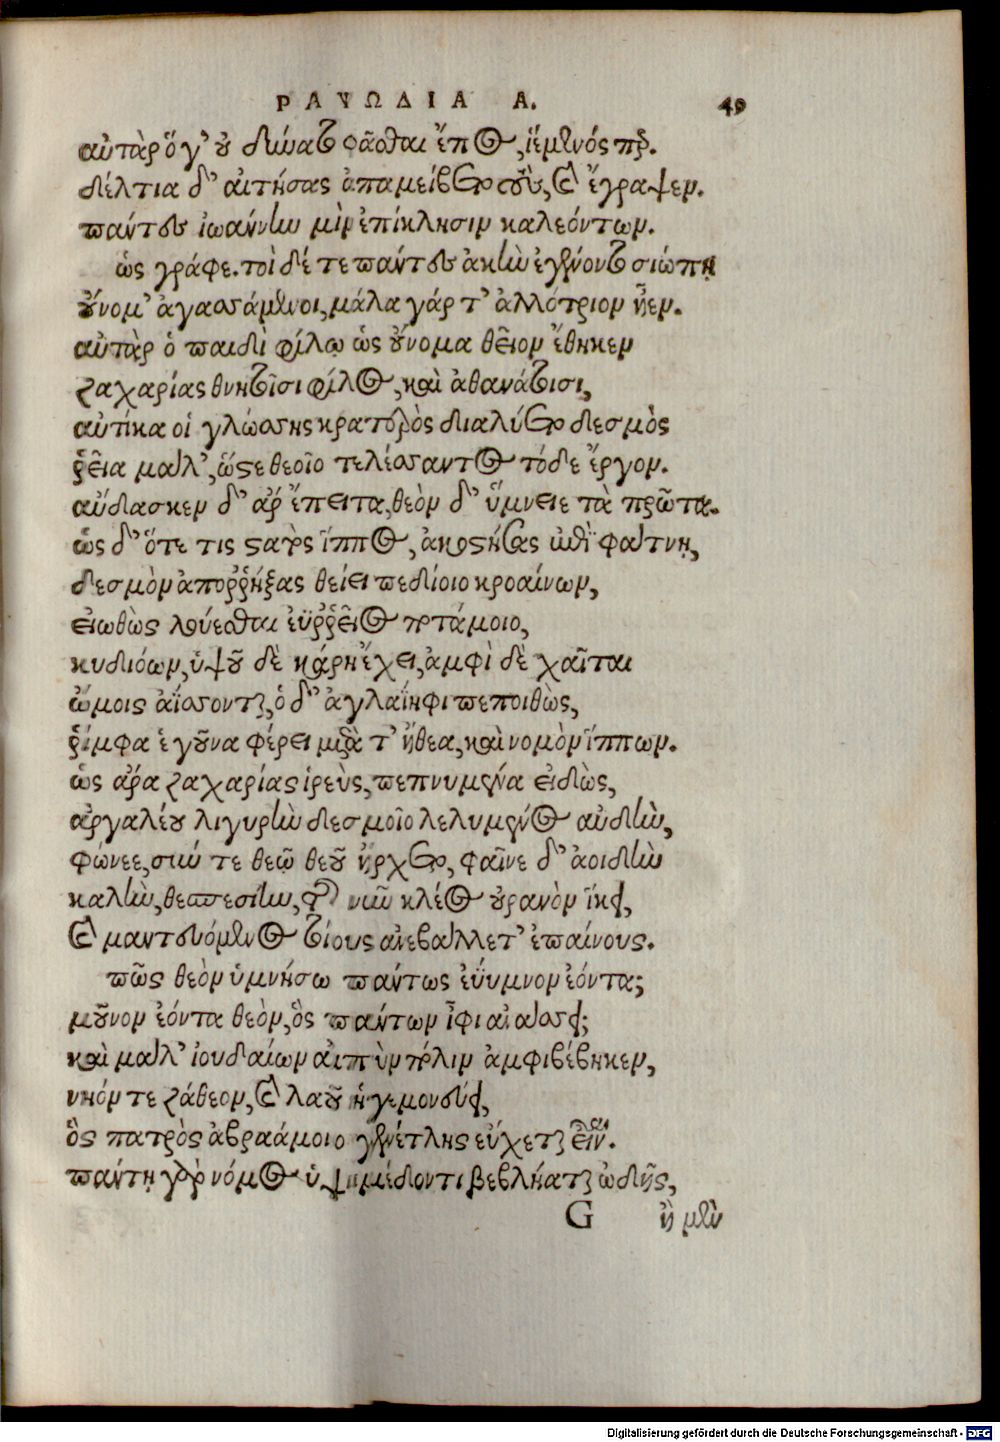 ΡΑΨΩΔΙΑ Α. 49
αὐτὰρ ὅγ' οὐ δύνατο φᾶσθαι ἔπος, ἱέμενός περ.
δέλτια δ' αἰτήσας ἀπαμείβετο σοὺς, καὶ ἔγραψεν.
πάντες ἰωάννην μὶν ἐπίκλησιν καλεόντων.
ὡς γράφε. τοὶ δέ τε πάντες ἀκὴν ἐγένοντο σιώπῃ
οὔνομ' ἀγασσάμενοι, μάλα γάρ τ' ἀλλότριον ἦεν.
αὐτὰρ ὁ παιδὶ φίλῳ ὡς οὔνομα θεῖον ἔθηκεν
ζαχαρίας θνητοῖσι φίλος, καὶ ἀθανάτοισι,
αὐτίκα οἱ γλώσσης κρατερὸς διαλύετο δεσμὸς
ῥεῖα μάλ', ὥστε θεοῖο τελέσσαντος τόδε ἔργον.
αὔδασκεν δ' ἄρ ἔπειτα, θεὸν δ' ὕμνειε τὰ πρῶτα.
ὡς δ' ὅτε τις στατὸς ἵππος, ἀκοστήσας ἐπὶ φάτνῃ,
δεσμὸν ἀπορῥήξας θείει πεδίοιο κροαίνων,
εἰωθὼς λούεσθαι ἐϋῤῥεῖος ποτάμοιο,
κυδιόων, ὑψοῦ δὲ κάρη ἔχει, ἀμφὶ δὲ χαῖται
ὤμοις ἀΐσσονται, ὁ δ' ἀγλαΐηφι πεποιθὼς,
ῥίμφα ἑ γοῦνα φέρει μετὰ τ' ἤθεα, καὶ νομὸν ἵππων.
ὡς ἄρα ζαχαρίας ἱρεὺς, πεπνυμένα εἰδὼς,
ἀργαλέου λιγυρὴν δεσμοῖο λελυμένος αὐδὴν,
φώνεε, σύν τε θεῷ θεοῦ ἤρχετο, φαῖνε δ' ἀοιδὴν
καλὴν, θεσπεσίην, τῆς νῦν κλέος οὐρανὸν ἵκει,
καὶ μαντευόμενος τοίους ἀνεβάλλετ' ἐπαίνους.
πῶς θεὸν ὑμνήσω πάντως ἐΰυμνον ἐόντα;
μοῦνον ἐόντα θεὸν, ὃς πάντων ἶφι ἀνάσσει;
καὶ μάλ' ἰουδαίων αἰπὺν πόλιν ἀμφιβέβηκεν,
νηόν τε ζάθεον, καὶ λαοῦ ἡγεμονεύει,
ὃς πατρὸς ἀβραάμοιο γενέτλης εὔχεται εἶναι.
πάντη γὰρ νόμος ὑψιμέδοντι βεβλήαται ὠδῆς,
G ἢ μὲν
Digitalisierung gefördert durch die Deutsche Forschungsgemeinschaft - DFG